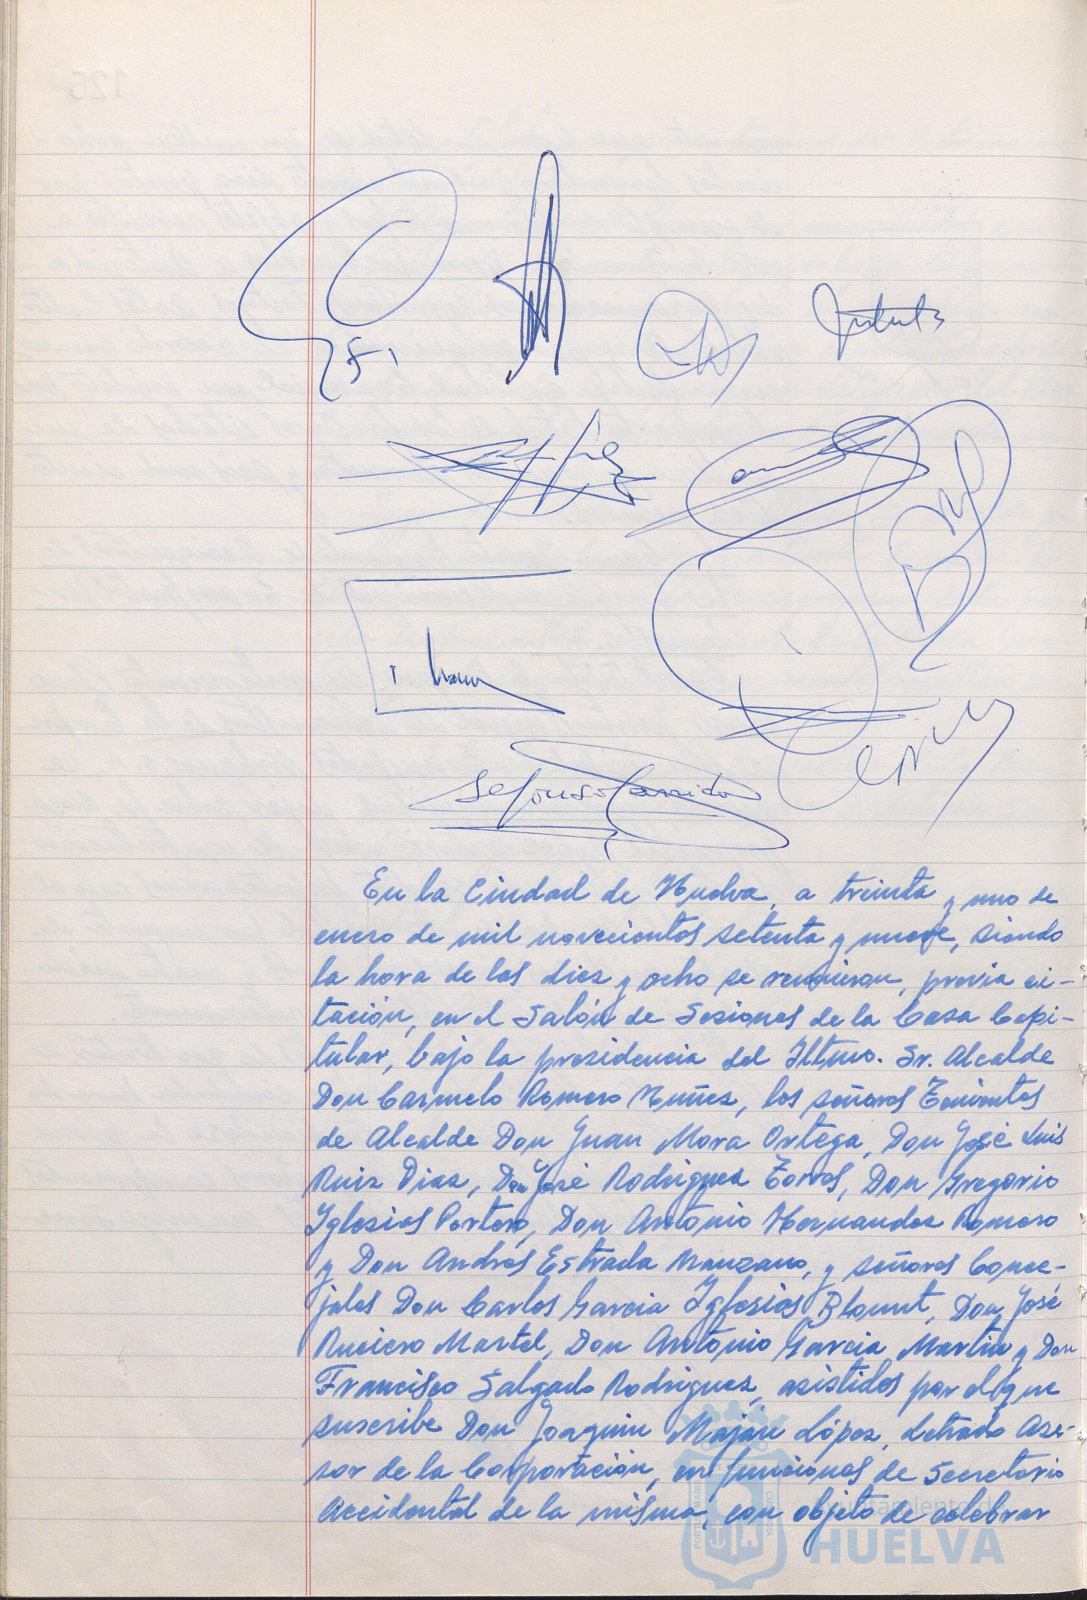 Ildefonso Garrido
En la Ciudad de Huelva, a treinta y uno de
enero de mil novecientos setenta y nueve, siendo
la hora de las diez y ocho se reunieron, previa ci-
tación, en el Salón de Sesiones de la Casa Capi-
tular, bajo la presidencia del Iltmo. Sr. Alcalde
Don Carmelo Romero Núñez, los señores Tenientes
de Alcalde Don Juan Mora Ortega, Don José Luis
Ruiz Díaz, Don José Rodríguez Torres, Don Gregorio
Iglesias Portero, Don Antonio Hernandez Romero
y Don Andrés Estrada Manzano, y señores Conce-
jales Don Carlos Garcia Iglesias Blount, Don José
Ruciero Martel, Don Antonio Garcia Martin y Don
Francisco Salgado Rodriguez, asistidos por el que
suscribe Don Joaquin Maján López, Letrado Ase-
sor de la Corporación, en funciones de Secretario
Accidental de la misma, con objeto de celebrar
Ayuntamiento de
HUELVA